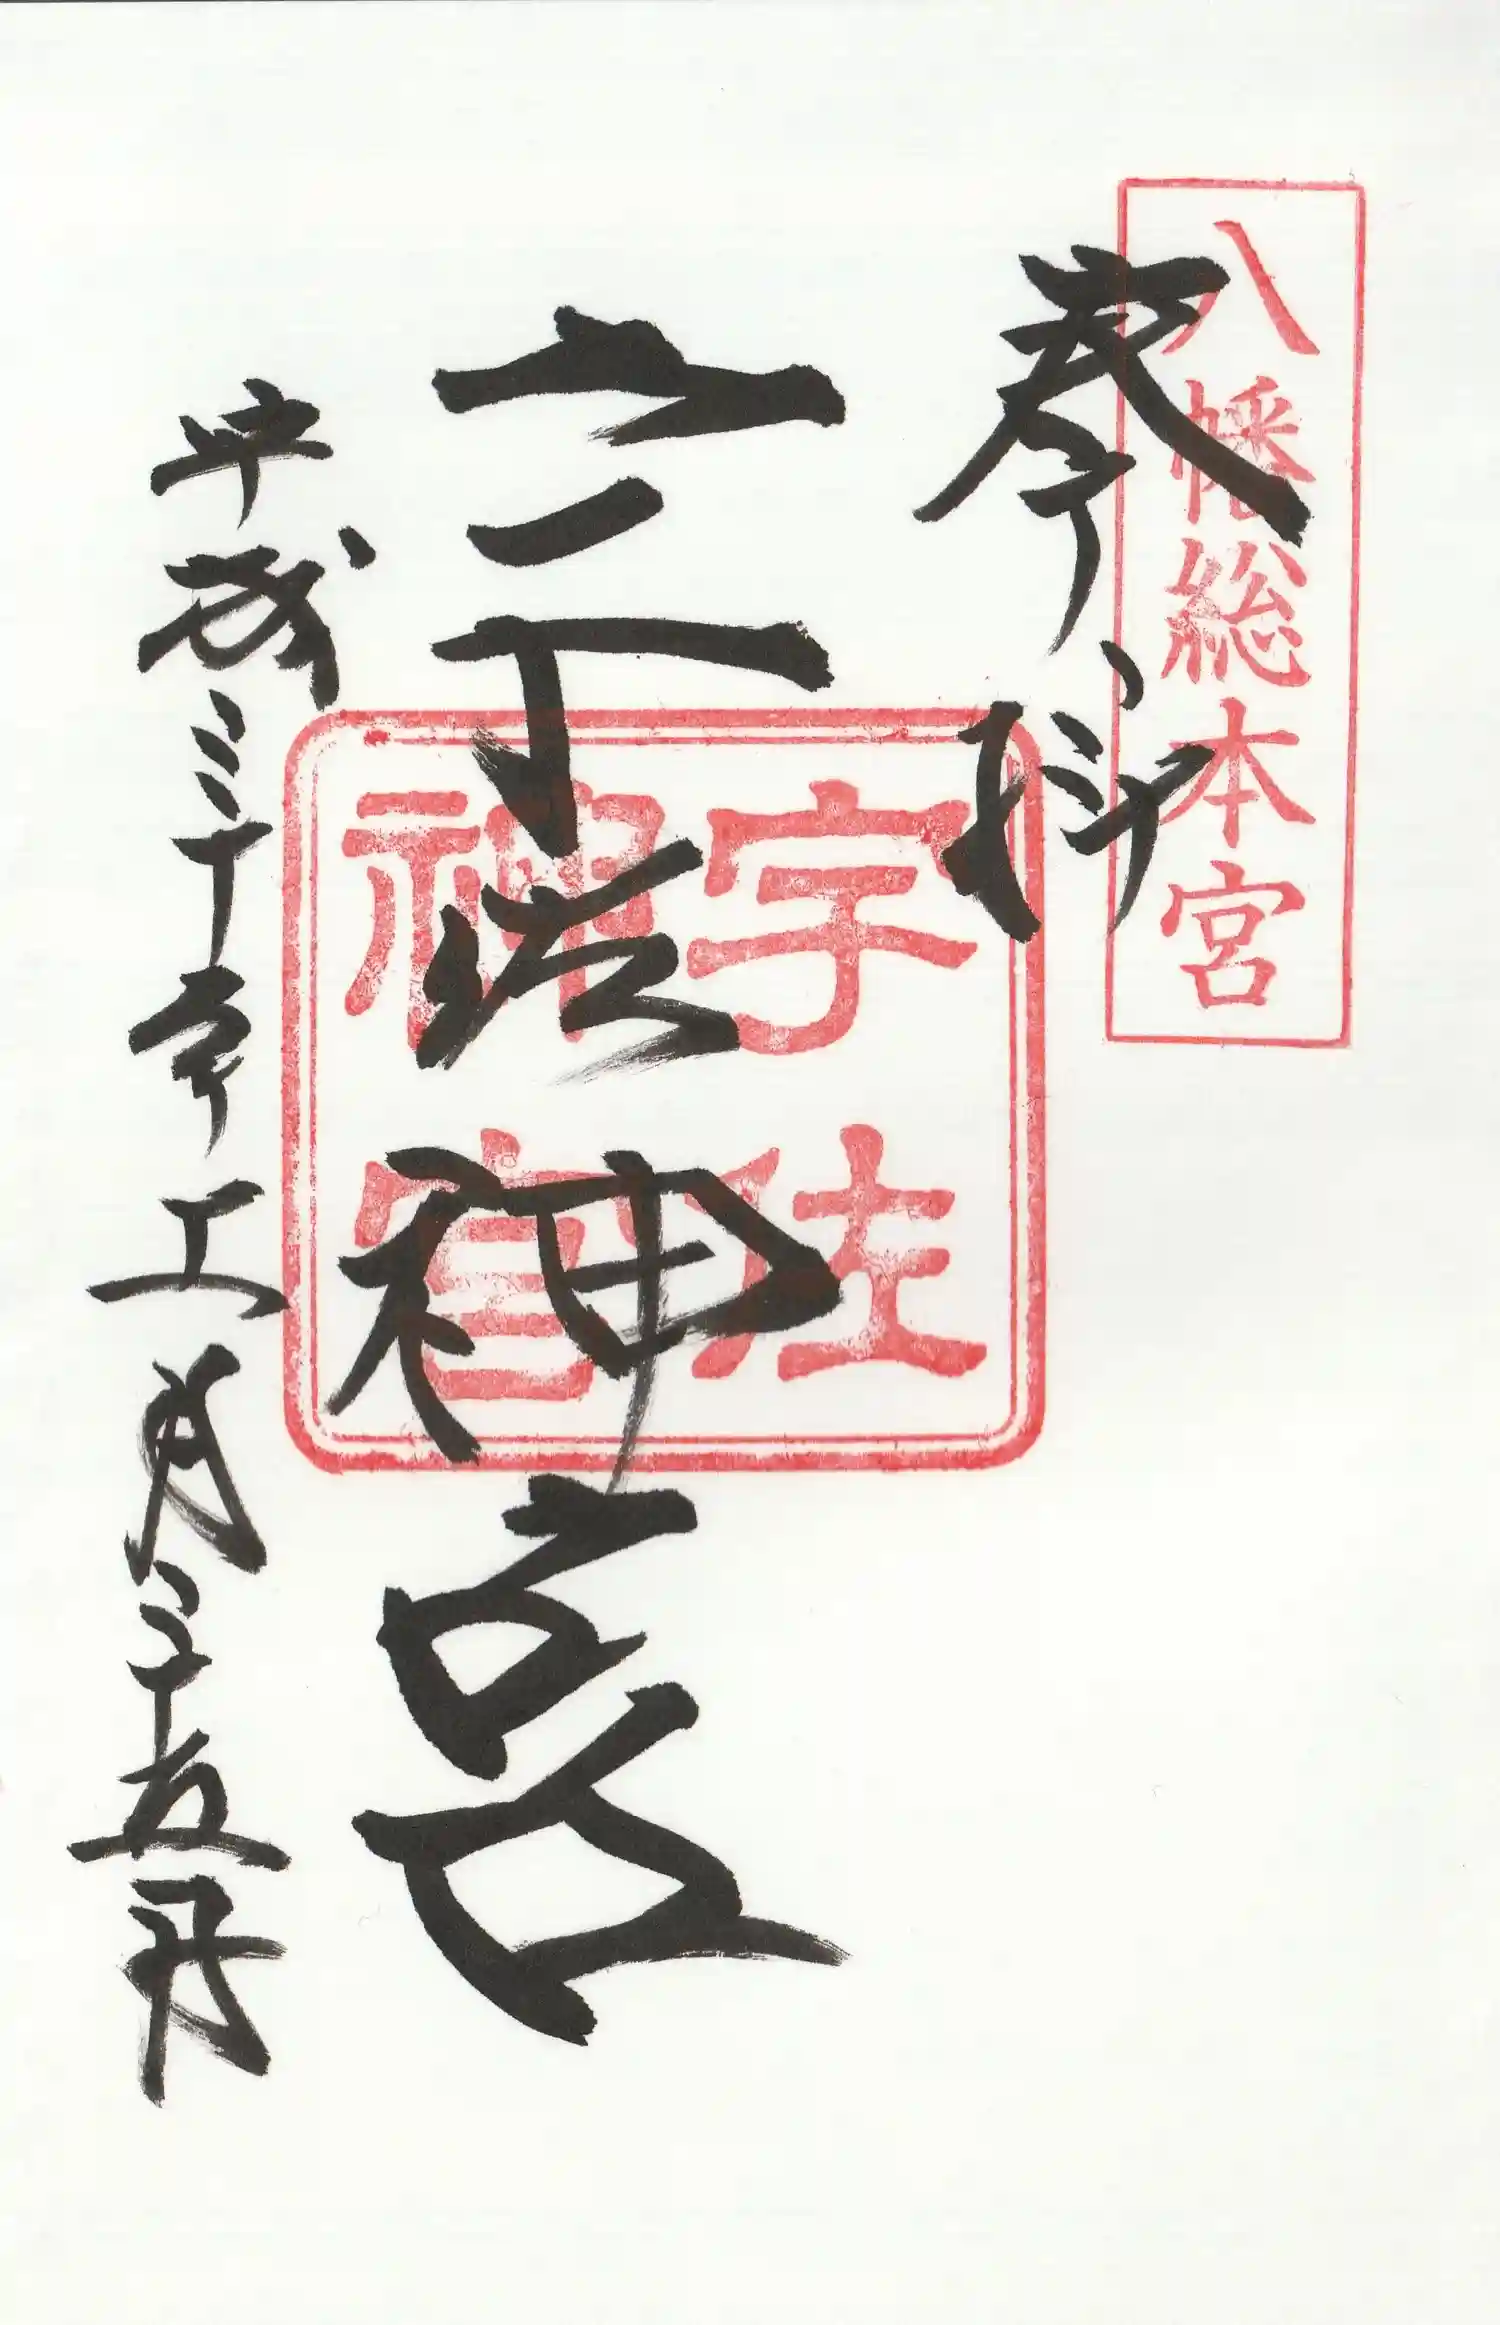 八幡総本宮
奉拝
宇佐神宮
宇佐
神宮
平成三十年月二十五日